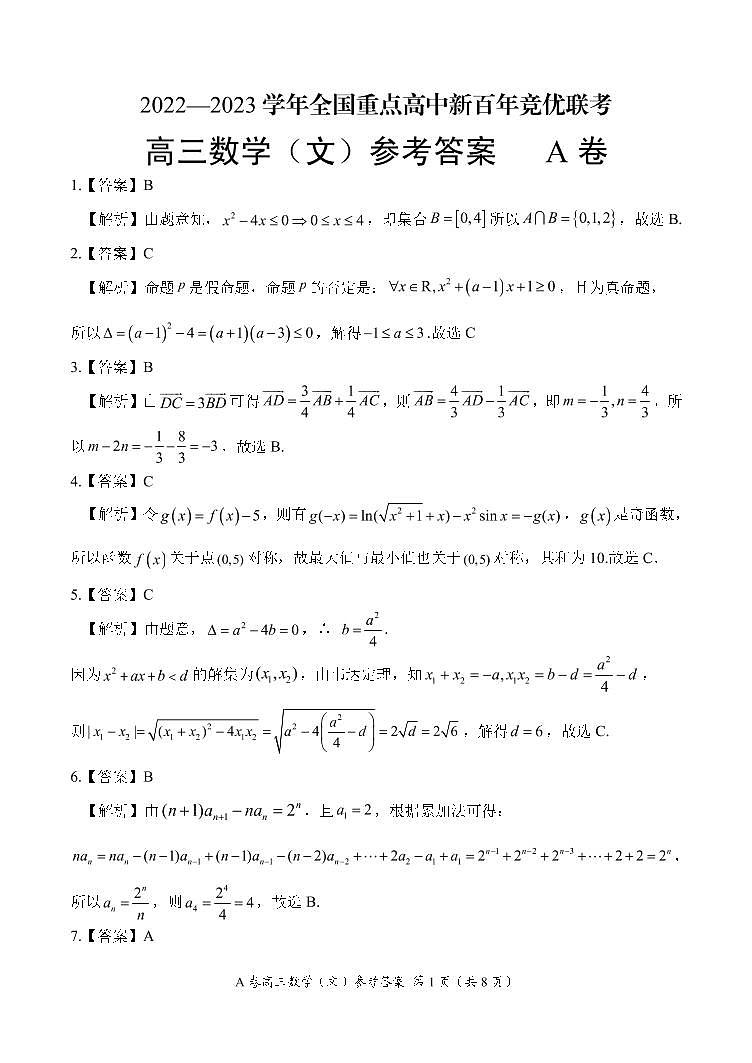 2022—2023 学年全国重点高中新百年竞优联考
高三数学（文）参考答案 A 卷
1.【答案】B
【解析】由题意知，x² − 4x ≤ 0 ⇒ 0 ≤ x ≤ 4，即集合 B = [0,4] 所以 A∩B = {0,1,2}，故选 B.
2.【答案】C
【解析】命题 p 是假命题，命题 p 的否定是：∀x ∈ R, x² + (a−1)x + 1 ≥ 0，且为真命题，
所以 Δ = (a−1)² − 4 = (a+1)(a−3) ≤ 0，解得 −1 ≤ a ≤ 3 .故选 C
3.【答案】B
【解析】由 \overrightarrow{DC} = 3\overrightarrow{BD} 可得 \overrightarrow{AD} = \frac{3}{4}\overrightarrow{AB} + \frac{1}{4}\overrightarrow{AC}，则 \overrightarrow{AB} = \frac{4}{3}\overrightarrow{AD} − \frac{1}{3}\overrightarrow{AC}，即 m = −\frac{1}{3}, n = \frac{4}{3}．所
以 m − 2n = −\frac{1}{3} − \frac{8}{3} = −3．故选 B.
4.【答案】C
【解析】令 g(x) = f(x) − 5，则有 g(−x) = ln(\sqrt{x²+1} + x) − x² sin x = −g(x)，g(x) 是奇函数，
所以函数 f(x) 关于点 (0,5) 对称，故最大值与最小值也关于 (0,5) 对称，其和为 10.故选 C．
5.【答案】C
【解析】由题意，Δ = a² − 4b = 0，∴ b = \frac{a²}{4}．
因为 x² + ax + b < d 的解集为 (x₁, x₂)，由韦达定理，知 x₁ + x₂ = −a, x₁x₂ = b − d = \frac{a²}{4} − d，
则 |x₁ − x₂| = \sqrt{(x₁ + x₂)² − 4x₁x₂} = \sqrt{a² − 4(\frac{a²}{4} − d)} = 2\sqrt{d} = 2\sqrt{6}，解得 d = 6，故选 C.
6.【答案】B
【解析】由 (n+1)a_{n+1} − na_n = 2^n．且 a₁ = 2，根据累加法可得：
na_n = na_n − (n−1)a_{n−1} + (n−1)a_{n−1} − (n−2)a_{n−2} + ⋯ + 2a₂ − a₁ + a₁ = 2^{n−1} + 2^{n−2} + 2^{n−3} + ⋯ + 2 + 2 = 2^n，
所以 a_n = \frac{2^n}{n}，则 a₄ = \frac{2⁴}{4} = 4，故选 B.
7.【答案】A
A 卷高三数学（文）参考答案 第 1 页（共 8 页）